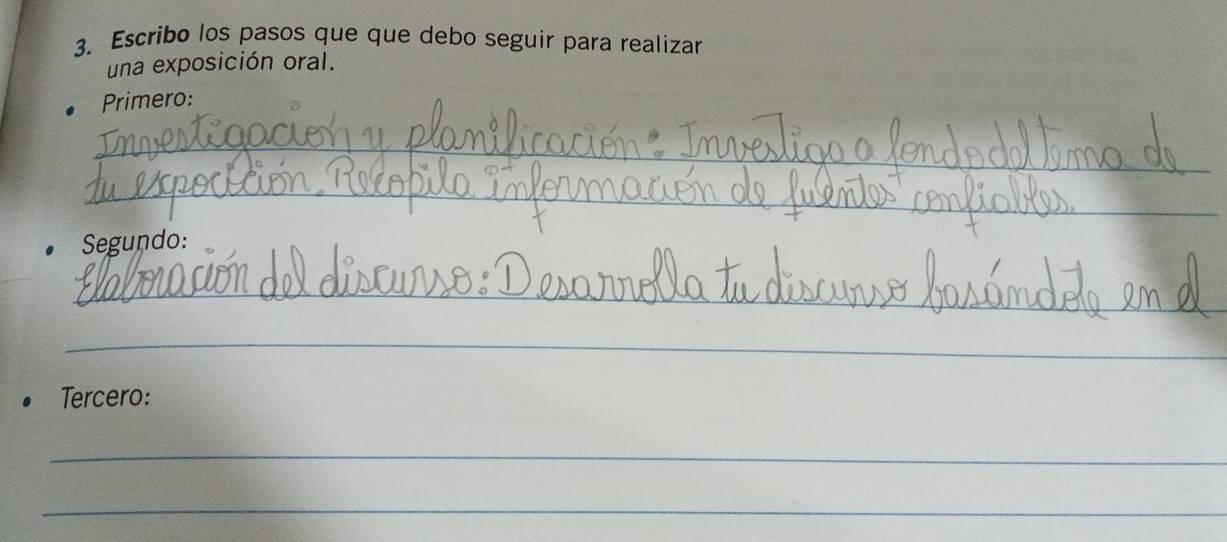 3. Escribo los pasos que que debo seguir para realizar
una exposición oral.
• Primero:
Investigación y planificación: Investiga a fondo del tema de
tu exposición. Recopila información de fuentes confiables.
• Segundo:
Elaboración del discurso: Desarrolla tu discurso basándote en el
• Tercero: